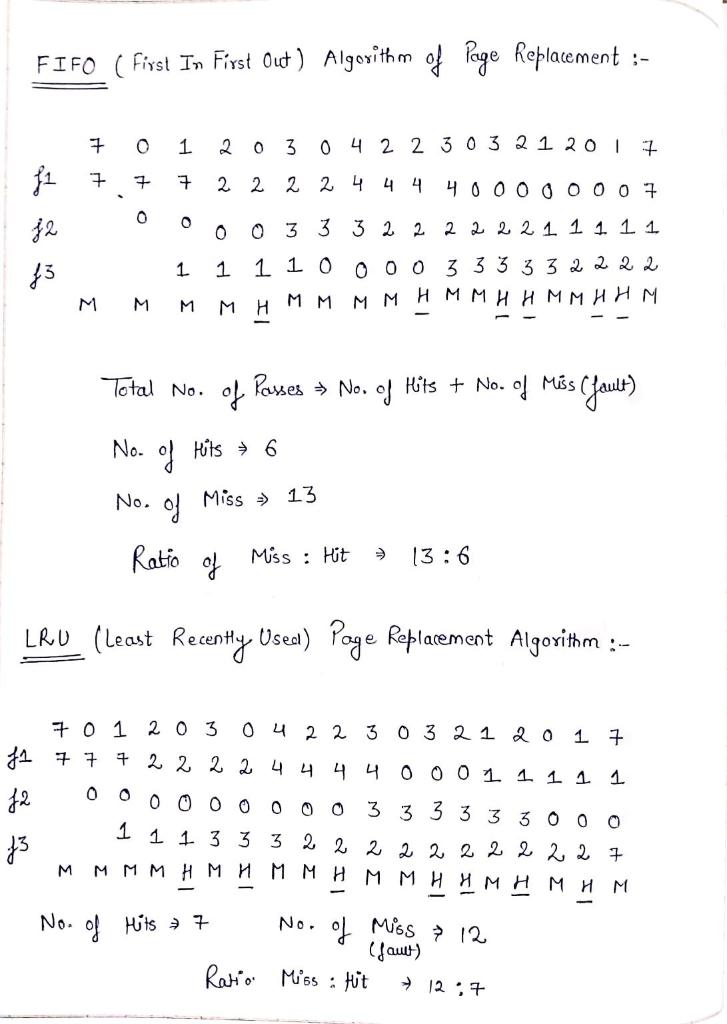 FIFO ( First In First Out ) Algorithm of Page Replacement :-
7 0 1 2 0 3 0 4 2 2 3 0 3 2 1 2 0 1 7
f1 7 7 7 2 2 2 2 4 4 4 4 0 0 0 0 0 0 0 7
f2 0 0 0 0 3 3 3 2 2 2 2 2 2 1 1 1 1 1
f3 1 1 1 1 0 0 0 0 3 3 3 3 3 2 2 2 2
M M M M H M M M M H M M H H M M H H M
Total No. of Passes ⇒ No. of Hits + No. of Miss (fault)
No. of Hits ⇒ 6
No. of Miss ⇒ 13
Ratio of Miss : Hit ⇒ 13 : 6
LRU (Least Recently Used) Page Replacement Algorithm :-
7 0 1 2 0 3 0 4 2 2 3 0 3 2 1 2 0 1 7
f1 7 7 7 2 2 2 2 4 4 4 4 0 0 0 1 1 1 1 1
f2 0 0 0 0 0 0 0 0 0 3 3 3 3 3 3 0 0 0
f3 1 1 1 3 3 3 2 2 2 2 2 2 2 2 2 2 7
M M M M H M H M M H M M H H M H M H M
No. of Hits ⇒ 7 No. of Miss ⇒ 12
(fault)
Ratio Miss : Hit → 12 : 7